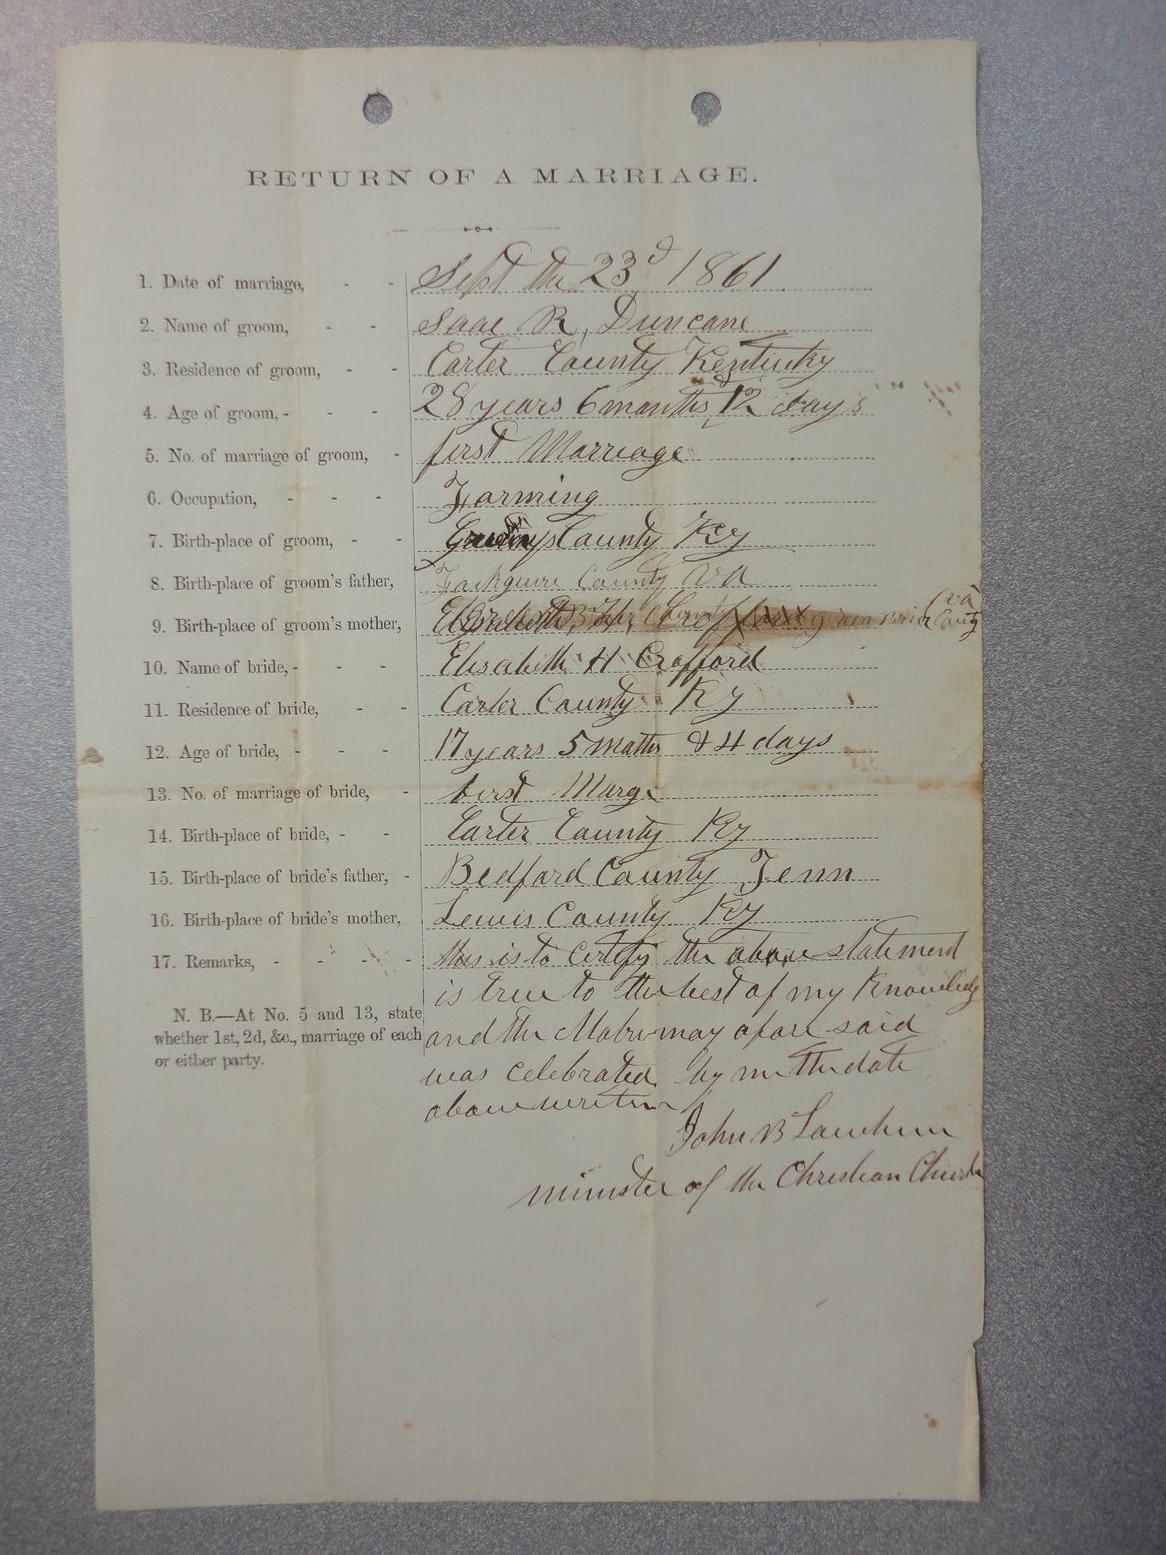 RETURN OF A MARRIAGE.
1. Date of marriage, - - Sept the 23d 1861
2. Name of groom, - - Isaac R, Duncane
3. Residence of groom, - - Carter County Kentucky
4. Age of groom, - - - 28 years 6 months 12 days
5. No. of marriage of groom, - first Marriage
6. Occupation, - - - Farming
7. Birth-place of groom, - - County Ky
8. Birth-place of groom's father, County VA
9. Birth-place of groom's mother, County va
10. Name of bride, - - - Elisabeth H Crafford
11. Residence of bride, - - Carter County Ky
12. Age of bride, - - - 17 years 5 months & 4 days
13. No. of marriage of bride, - first Marge
14. Birth-place of bride, - - Carter County Ky
15. Birth-place of bride's father, - Bedford County Tenn
16. Birth-place of bride's mother, Lewis County Ky
17. Remarks, - - - - this is to certify the above statement
is true to the best of my Knowledg
N. B.—At No. 5 and 13, state
whether 1st, 2d, &c., marriage of each
or either party.
and the Matrimony afore said
was celebrated by me the date
above writen
John B Lawhun
minister of the Christian Church